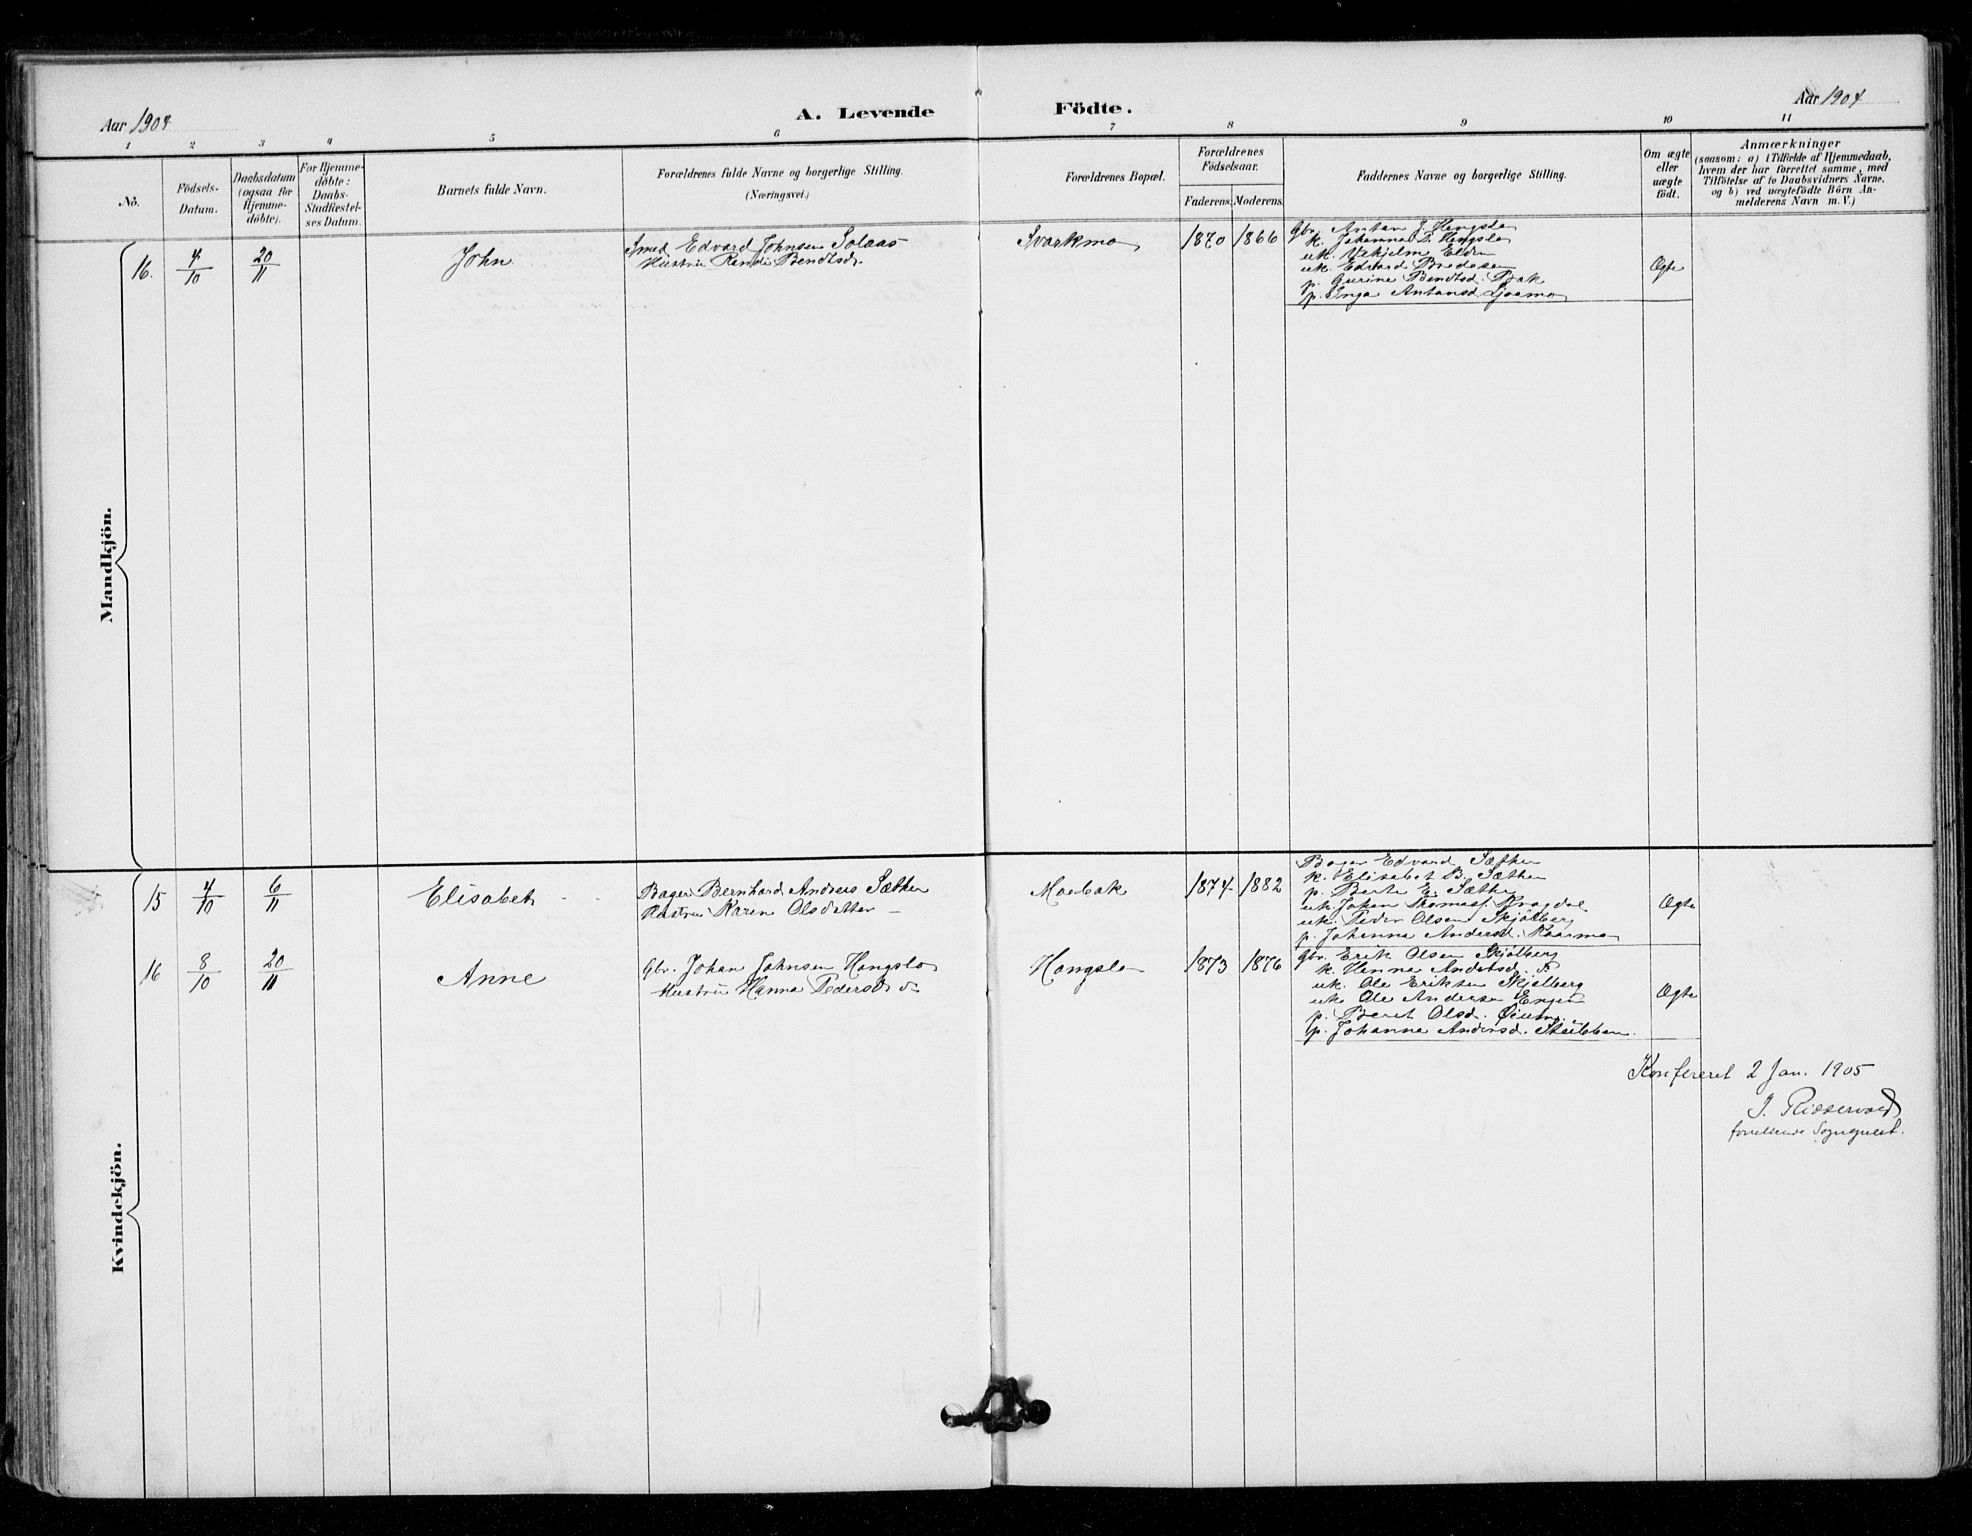 Aar 1904
A. Levende Födte.
Aar 1904
1 2 3 4 5 6 7 8 9 10 11
No.
Födsels-
Datum.
Daabsdatum
(ogsaa för
Hjemme-
döbte).
For Hjemme-
döbte:
Daabs-
Stadfæstel-
ses Datum.
Barnets fulde Navn.
Forældrenes fulde Navne og borgerlige Stilling.
(Næringsvei.)
Forældrenes Bopæl.
Forældrenes
Födselsaar.
Faderens. Moderens.
Faddernes Navne og borgerlige Stilling.
Om ægte
eller
uægte
födt.
Anmærkninger
(saasom: a) i Tilfælde af Hjemmedaab,
hvem der har forrettet samme, med
Tilföielse af to Daabsvidners Navne.
og b) ved uægtefödte Börn An-
melderens Navn m. V.)
Mandkjön.
16. 4/10 20/11
John
Smed Edvard Johnsen Solaas
Hustru Randi Bendtsd.
Svarkmo
1870 1866
Gbr. Antan J. Hongslo
k. Johanna D. Hongslo
uk. Edvard
p. Gurine Bendtsd.
p. Inga Antonsd.
Ægte
Kvindekjön.
15 4/10 6/11
Elisabet
Bager Bernhard Anders Sæther
Hustru Karen Olsdatter
Moebak
1874 1882
Bager Edvard Sæther
k. Elisabet B. Sæther
p. Berte E. Sæther
uk. Johan Thomass. Krogdal
uk. Peder Olsen Skjölberg
p. Johanna Andersd. Kaasmo
Ægte
16 8/10 20/11
Anne
Gbr. Johan Johnsen Hongslo
Hustru Hanna Pedersd.
Hongslo
1873 1876
Gbr. Erik Olsen Skjölberg
k. Hanna Andersd.
uk. Ole Eriksen Skjölberg
uk. Ole Andersen Engen
p. Beret Olsd.
p. Johanna Andersd. Stubban.
Ægte
Konfereret 2 Jan. 1905
J. Riddervold
Sogneprest.